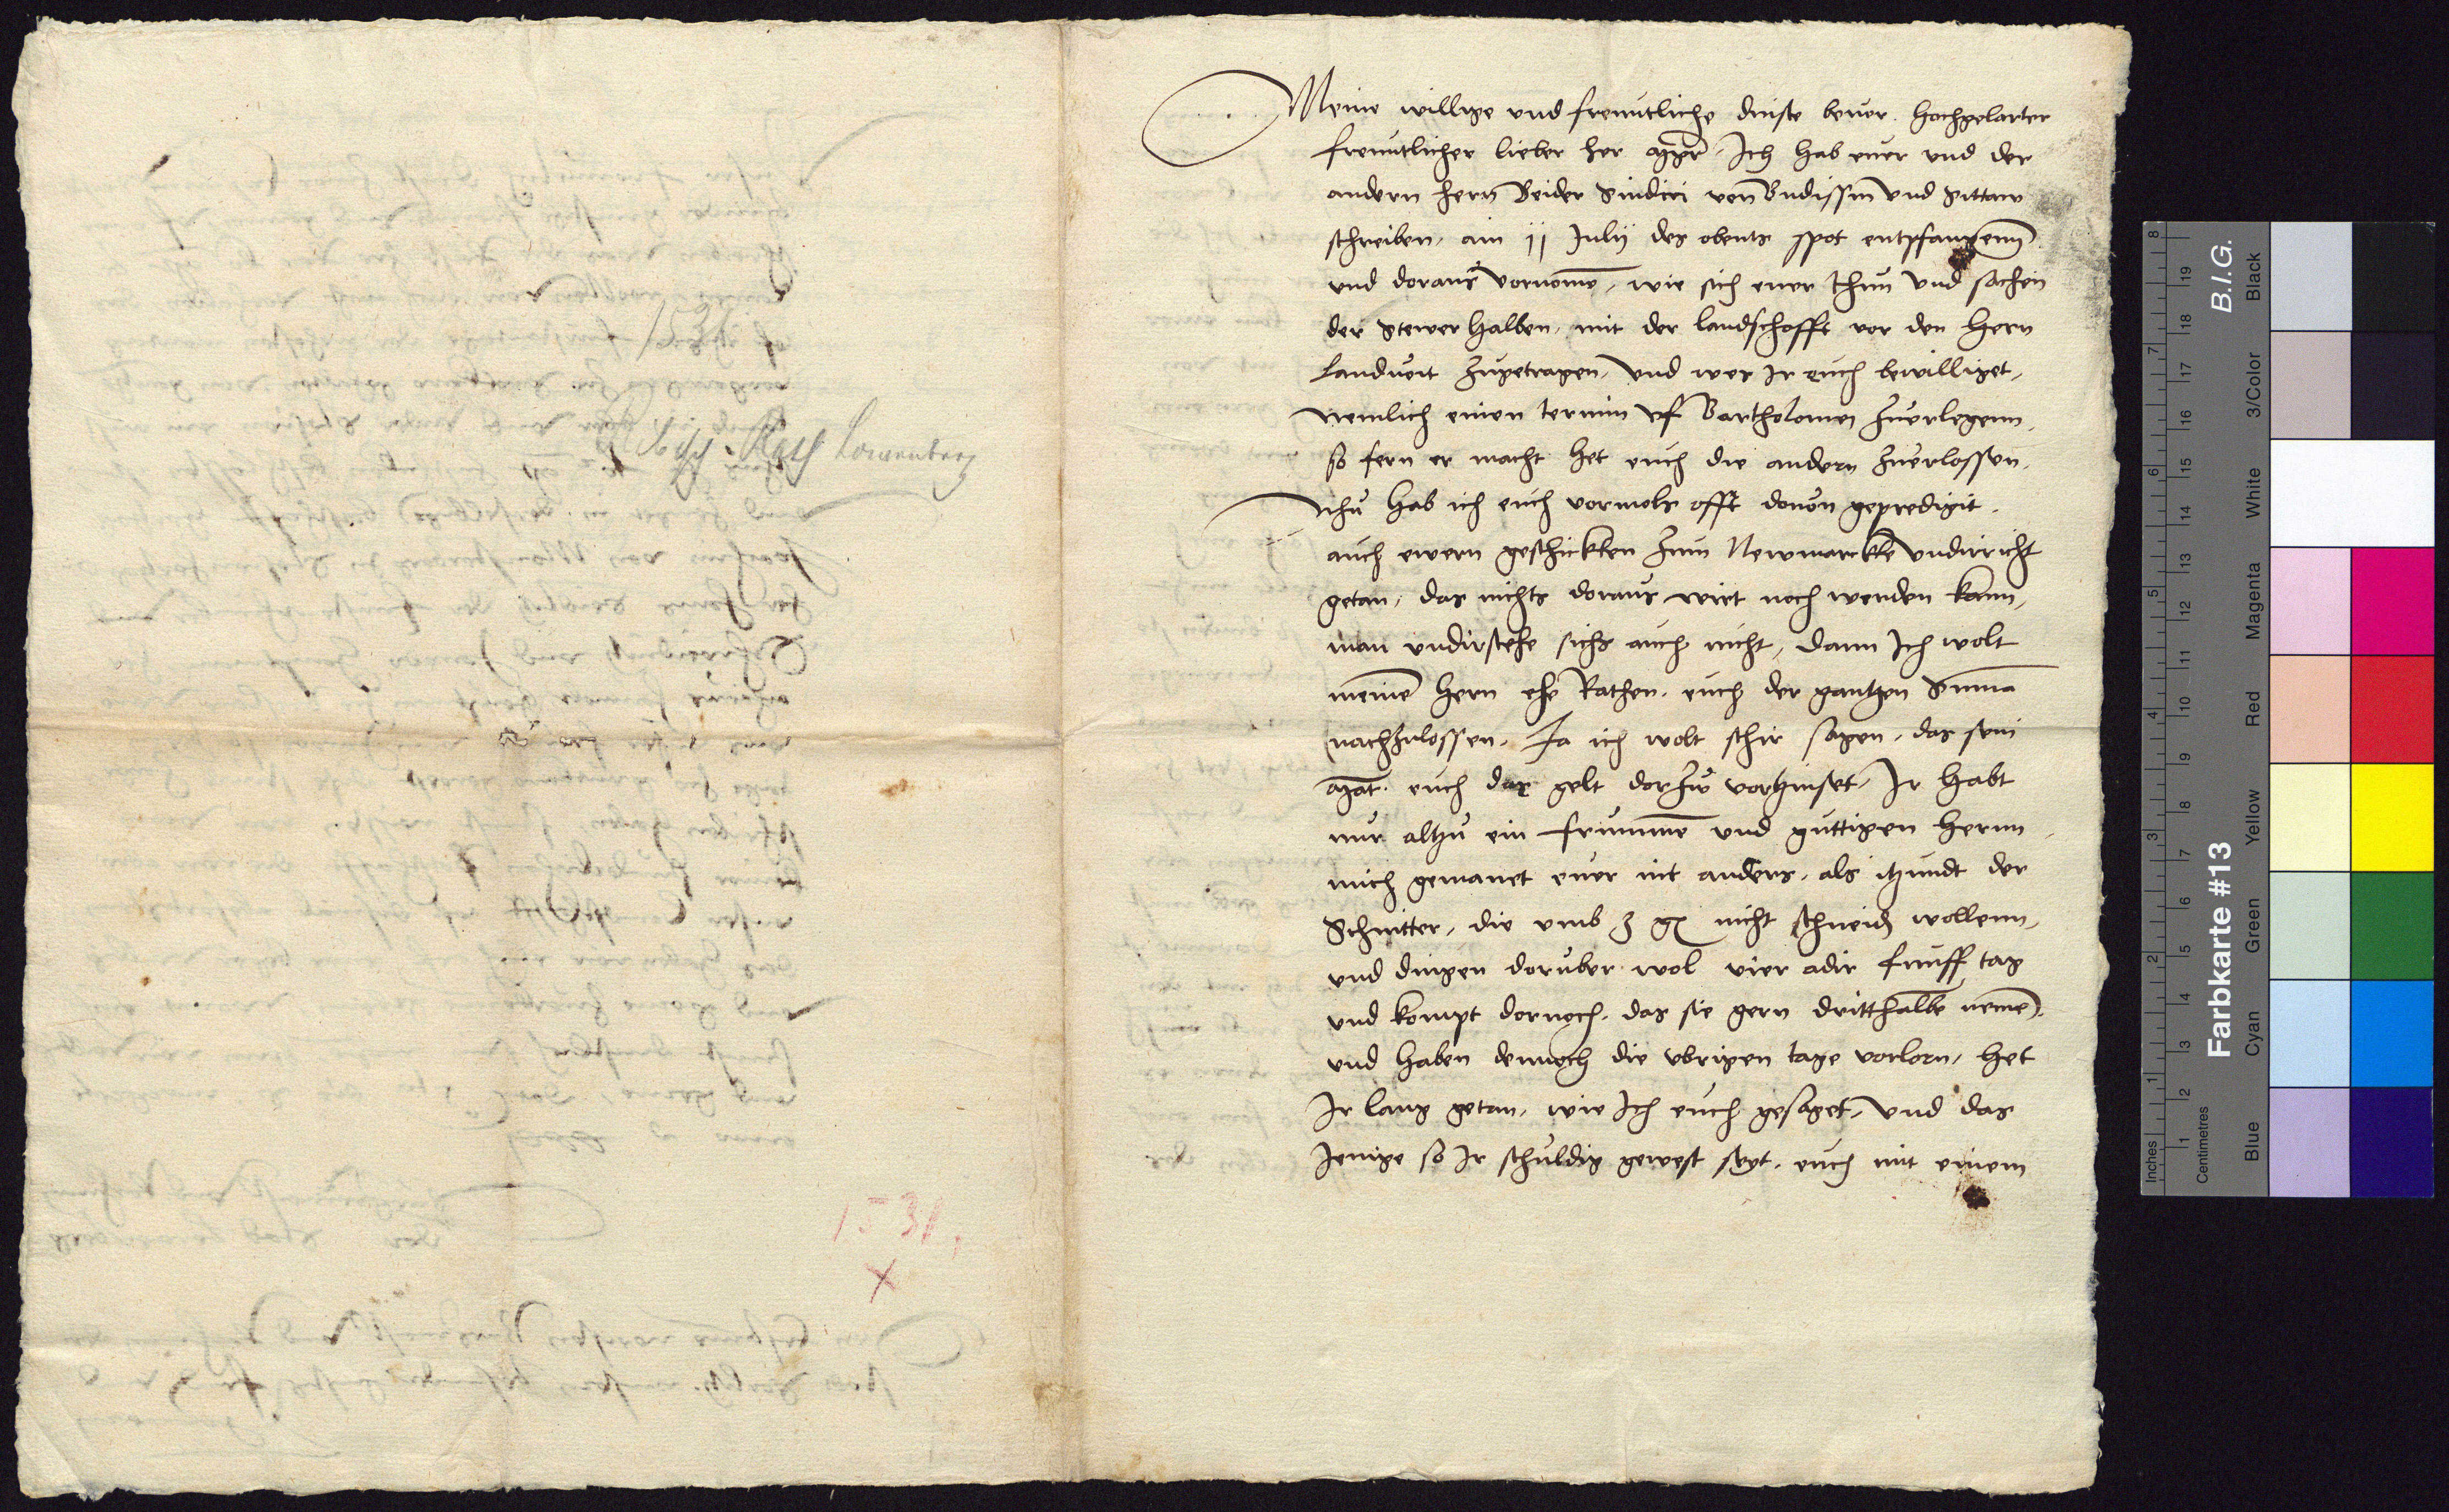 1531
Rath Lowenberg
1531,
X
Meine willige vnd freuntliche dinste beuor. Hochgelarter
freuntlicher lieber her mgr Ich hab euer vnd der
andern hern Beider Sindici von Budissin vnd Sittaw
schreiben, am 11 Julij des obents spot entpfangenn
vnd doraus vornome, wie sich ewer thun vnd sachen
der Stewer halben, mit der landschofft vor den hern
landuoit zugetragen, vnd wes Ir euch bewilliget,
nemlich einen termin vf Bartholomei zuerlegenn,
so fern er macht het euch die andern zuerlossen,
Nhu hab ich euch vormols offt douon geprediget,
auch ewern geschickten zum Newmarckte vndirricht
getan, das nichts doraus wirt noch werden kann,
man vndirstehe sichs auch nicht, dann Ich wolt
meine hern ehe Rathen, euch der gantzen Summa
nachzulossen, Ja ich wolt schir sagen, das sein
Mat. euch das gelt dorzu vorzinset, Ir habt
nur altzu ein frumme vnd guttigen hernn,
mich gemanet euer nit anders, als itzundt der
Schnitter, die vmb 3 gr nicht schneid wollenn,
vnd dingen doruber wol vier adir funff tag
vnd kompt dornoch, das sie gern dritthalbe neme,
vnd haben dennoch die vbrigen tage vorlorn, het
Ir lang getan, wie Ich euch gesaget, vnd das
Jenige so Ir schuldig gewest seyt, euch mit einem
Farbkarte #13
B.I.G.
Inches
Centimetres
Blue
Cyan
Green
Yellow
Red
Magenta
White
3/Color
Black